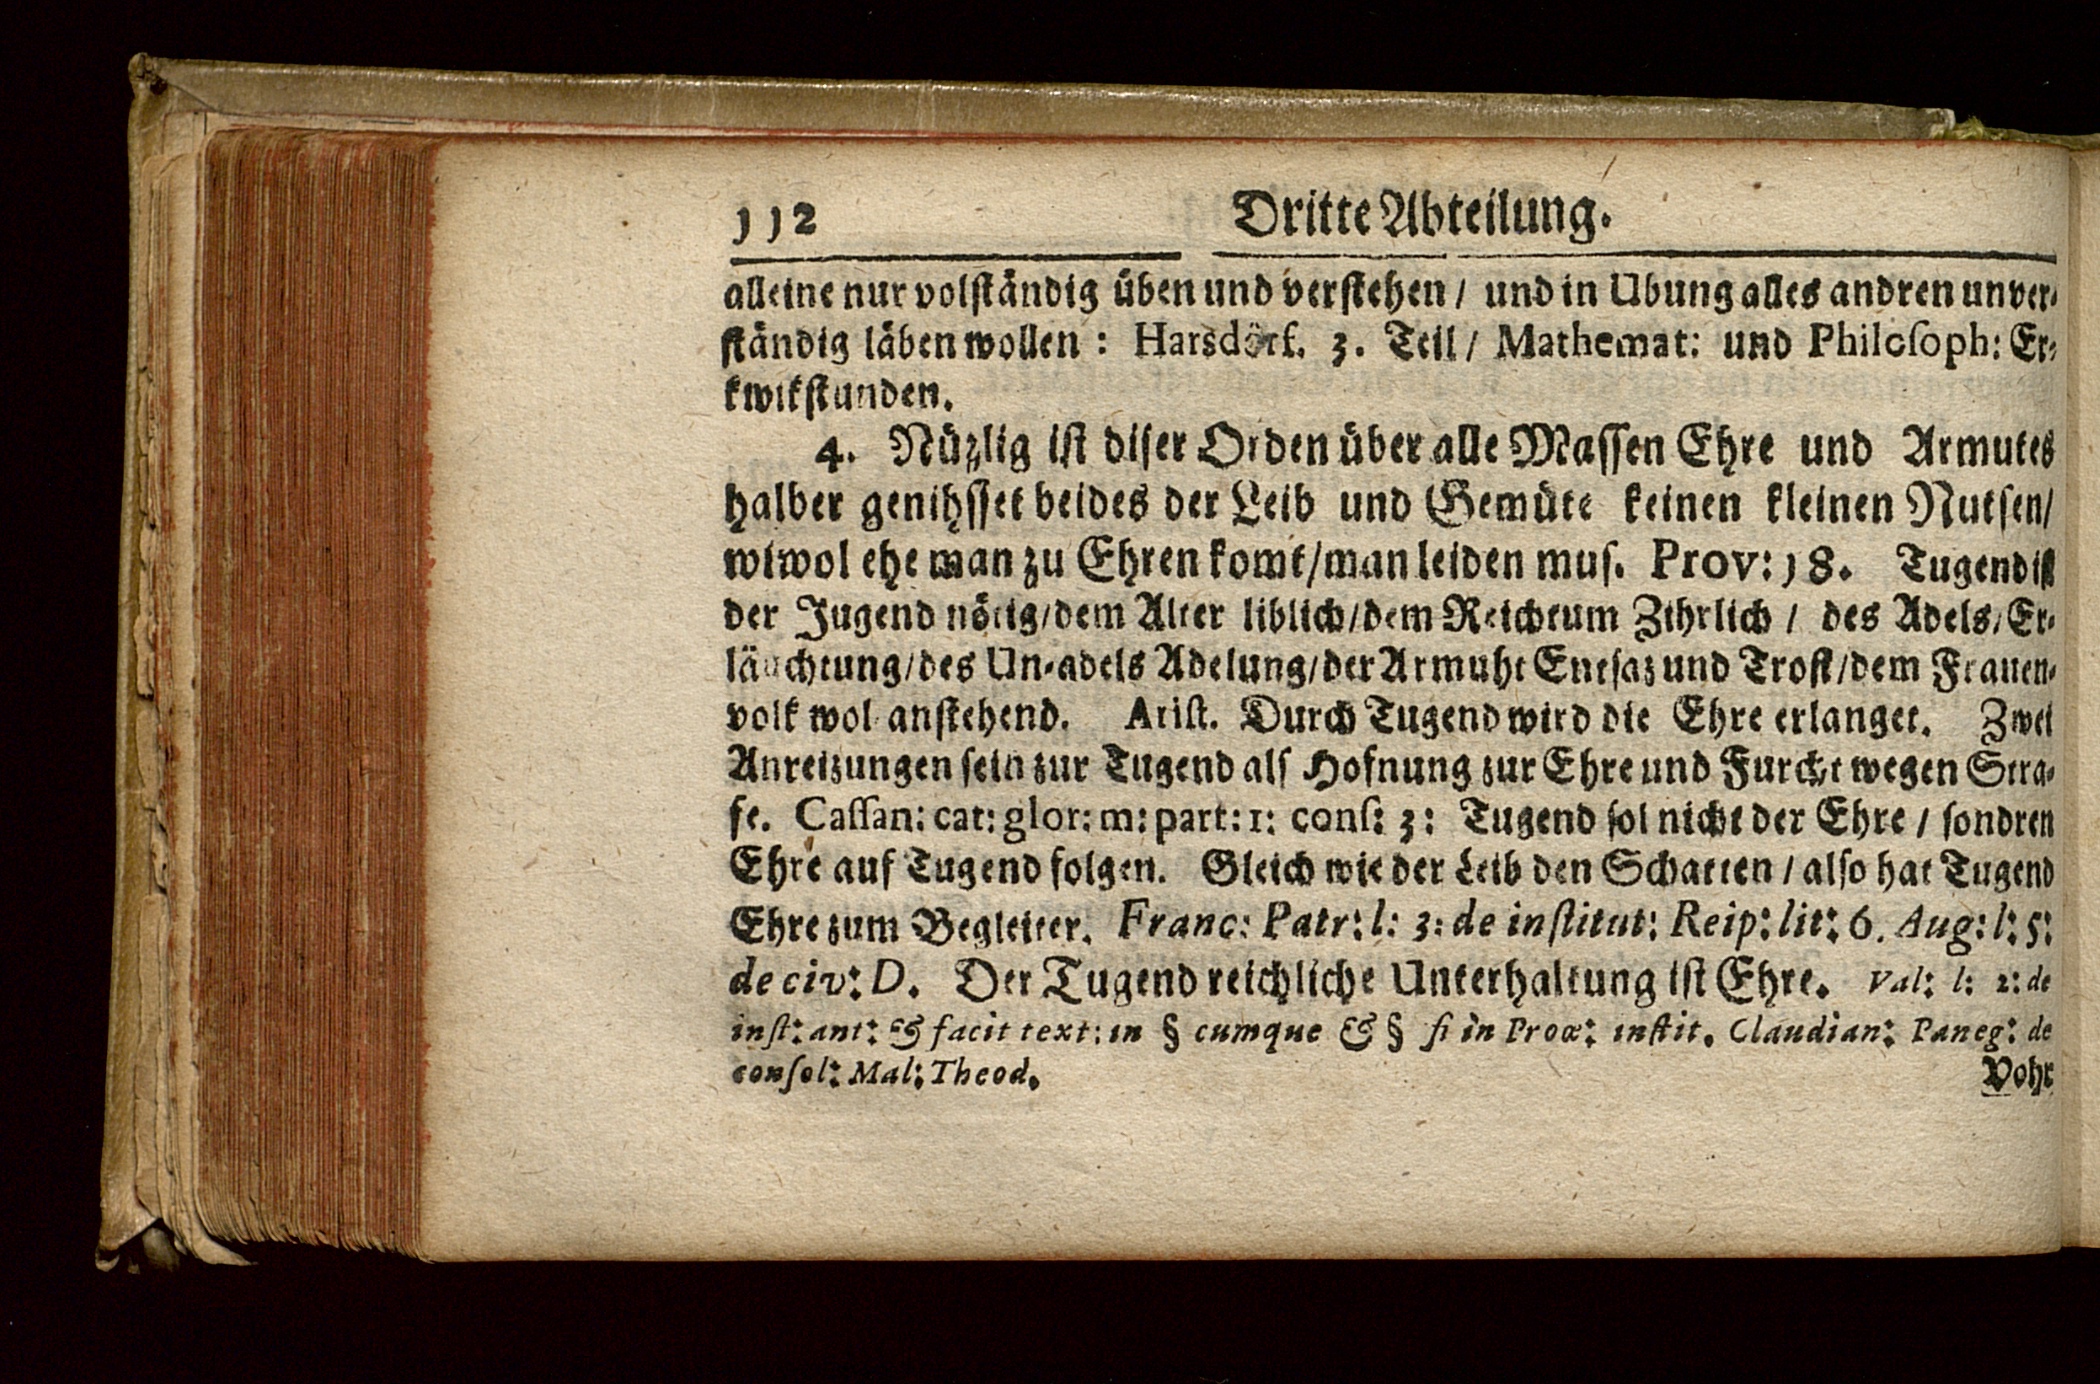 112 Dritte Abteilung.
alleine nur volſtändig üben und verſtehen / und in Ubung alles andren unver-
ſtändig läben wollen : Harsdörf. 3. Teil / Mathemat: und Philoſoph: Er-
kwikſtunden.
4. Nüzlig iſt diſer Orden über alle Maſſen Ehre und Armutes
halber genihſſet beides der Leib und Gemüte keinen kleinen Nutſen/
wiwol ehe man zu Ehren komt/man leiden muſ. Prov: 18. Tugend iſt
der Jugend nötig/dem Alter liblich/dem Reichtum Zihrlich / des Adels/Er-
läuchtung/des Un-adels Adelung/der Armuht Entſaz und Troſt/dem Frauen-
volk wol anſtehend. Ariſt. Durch Tugend wird die Ehre erlanget. Zwei
Anreizungen ſein zur Tugend alſ Hofnung zur Ehre und Furcht wegen Stra-
fe. Caſſan: cat: glor: m: part: 1: conſ: 3: Tugend ſol nicht der Ehre / ſondren
Ehre auf Tugend folgen. Gleich wie der Leib den Schatten / alſo hat Tugend
Ehre zum Begleiter. Franc: Patr: l: 3: de inſtitut: Reip: lit: 6. Aug: l: 5:
de civ: D. Der Tugend reichliche Unterhaltung iſt Ehre. Val: l: 2: de
inſt: ant: & facit text: in § cumque & § ſi in Proœ: inſtit. Claudian: Paneg: de
conſol: Mal: Theod.
Vohr